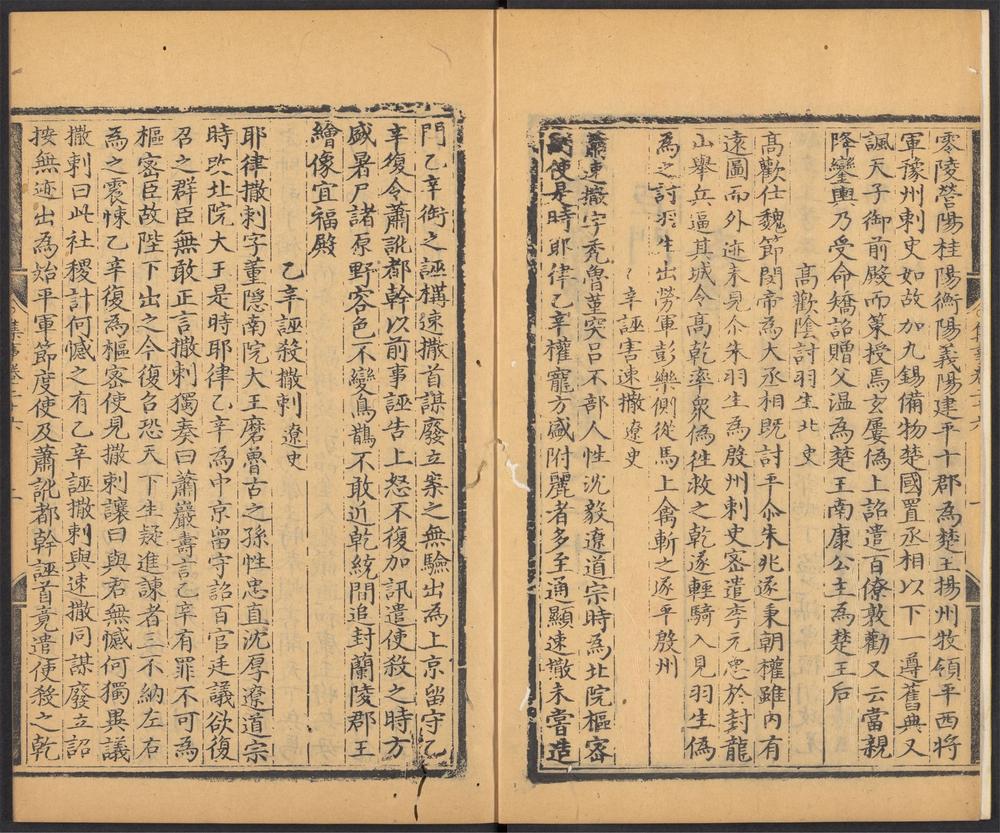 零陵營陽桂陽衡陽義陽建平十郡為楚王揚州牧領平西將
軍豫州刺史如故加九錫備物楚國置丞相以下一遵舊典又
諷天子御前殿而策授焉玄屢偽上詔遣百僚敦勸又云當親
降鑾輿乃受命矯詔贈父溫為楚王南康公主為楚王后
高歡陰討羽生北史
高歡仕魏節閔帝為大丞相既討平尒朱兆遂秉朝權雖內有
遠圖而外迹未見尒朱羽生為殷州刺史密遣李元忠於封龍
山舉兵逼其城令高乾率衆偽往救之乾遂輕騎入見羽生偽
為之討羽生出勞軍彭樂側從馬上禽斬之遂平殷州
辛誣害速撒遼史
蕭速撒字禿魯菫突呂不部人性沈毅遼道宗時為北院樞密
使是時耶律乙辛權寵方盛附麗者多至通顯速撒未嘗造
門乙辛銜之誣構速撒首謀廢立案之無驗出為上京留守乙
辛復令蕭訛都斡以前事誣告上怒不復加訊遣使殺之時方
盛暑尸諸原野容色不變鳥鵲不敢近乾統間追封蘭陵郡王
繪像宜福殿
乙辛誣殺撒剌遼史
耶律撒剌字董隱南院大王磨魯古之孫性忠直沈厚遼道宗
時改北院大王是時耶律乙辛為中京留守詔百官廷議欲復
召之群臣無敢正言撒剌獨奏曰蕭巖壽言乙辛有罪不可為
樞密臣故陛下出之今復召恐天下生疑進諫者三不納左右
為之震悚乙辛復為樞密使見撒剌讓曰與君無憾何獨異議
撒剌曰此社稷計何憾之有乙辛誣撒剌與速撒同謀廢立詔
按無迹出為始平軍節度使及蕭訛都斡誣首竟遣使殺之乾